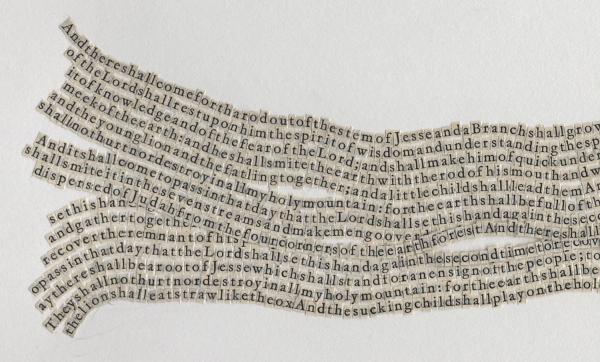 AndthereshallcomefortharodoutofthestemofJesseandaBranchshallgrow
oftheLordshallrestuponhimthespiritofwisdomandunderstandingthesp
itofknowledgeandofthefearoftheLord;andshallmakehimofquickunde
meekoftheearth:andheshallsmitetheearthwiththerodof
andtheyounglionandthefatlingtogether;andalittlechildshallleadthem
shallnothurtnordestroyinallmyholymountain:fortheearthshallbefullofth
AnditshallcometopassinthatdaythattheLordshallsethishandagainintheseco
shallsmiteitinthesevenstreamsandmakemengoover
dispersedofJudahfromthefourcornersoftheearthforestAndthereshall
sethishan
andgathertogetherthe
recovertheremnantofhis
opassinthatdaythattheLordshallsethishandagaininthesecondtimetorecover
aythereshallbearootofJessewhichshallstandforanensignofthepeople;to
Theyshallnothurtnordestroyinallmyholymountain:fortheearthshallbe
thelionshalleatstrawliketheoxAndthesuckingchildshallplayonthehol